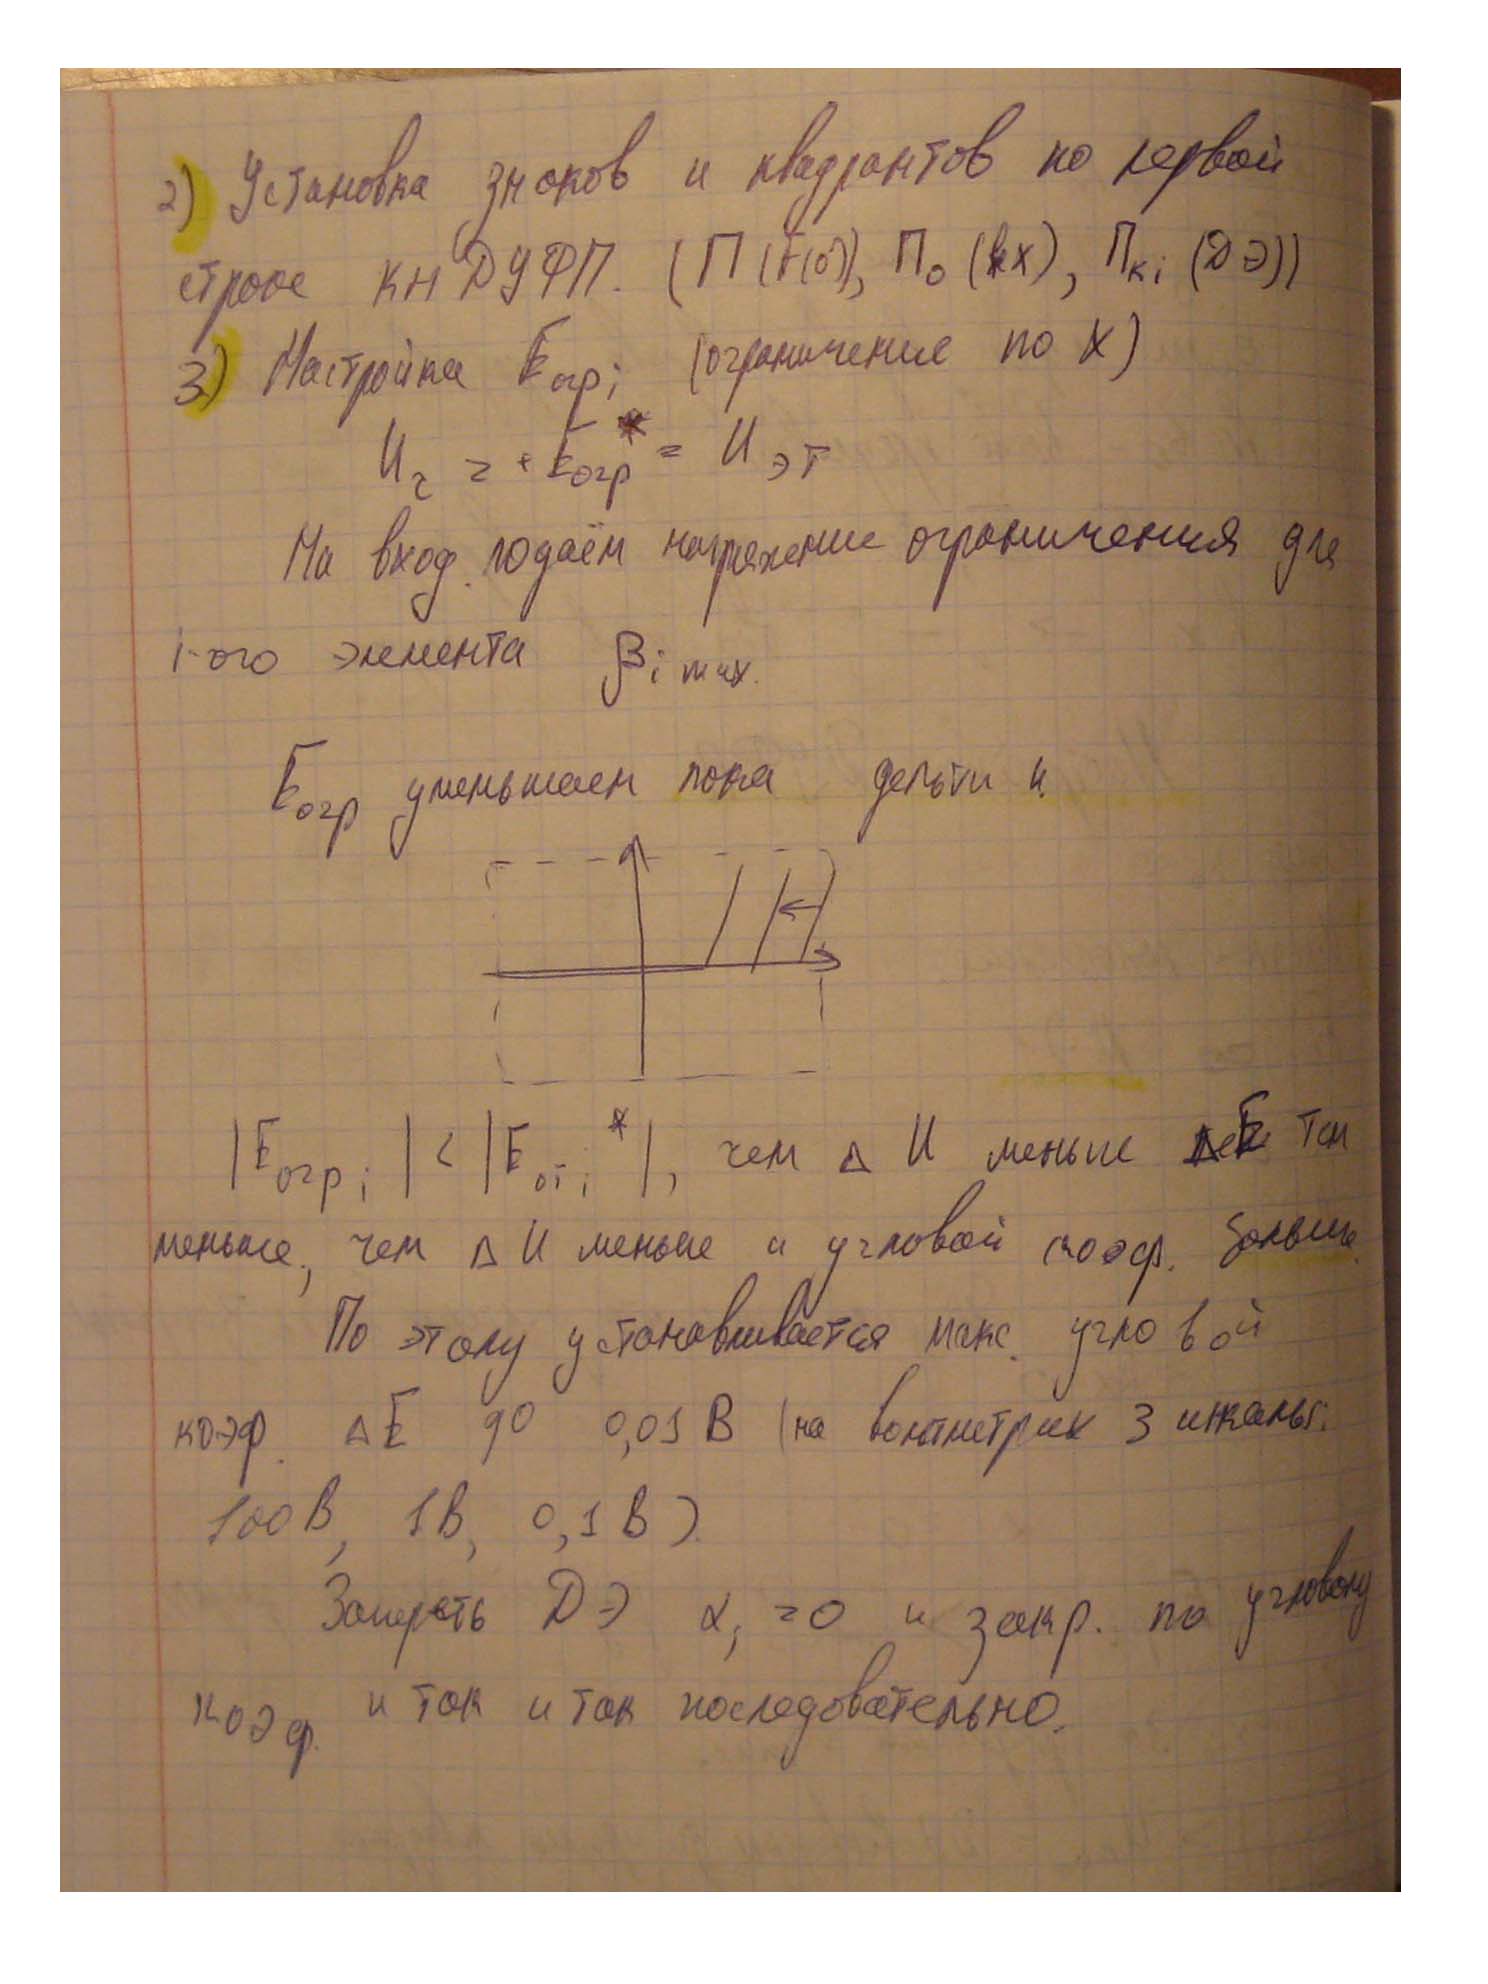 2) Установка знаков и квадрантов по первой
строке КНДУФП. (П (F(0)), П₀ (вх), Пкi (ДЭ))
3) Настройка Eогрi (ограничение по X)
= + Eогр* = Uэт
На вход. подаём напряжение ограничения для
i-ого элемента βi max.
Eогр уменьшаем пока дельти и
|Eогрi| < |Eотi*|, чем Δ U меньше ΔE тем
меньше, чем Δ U меньше и угловой коэф. больше.
По этому устанавливается макс. угловой
коэф. ΔE до 0,01 В (на вольтметрик 3 шкалы:
100В, 1В, 0,1В)
Запереть ДЭ αi = 0 и закр. по угловому
коэф. и так и так последовательно.